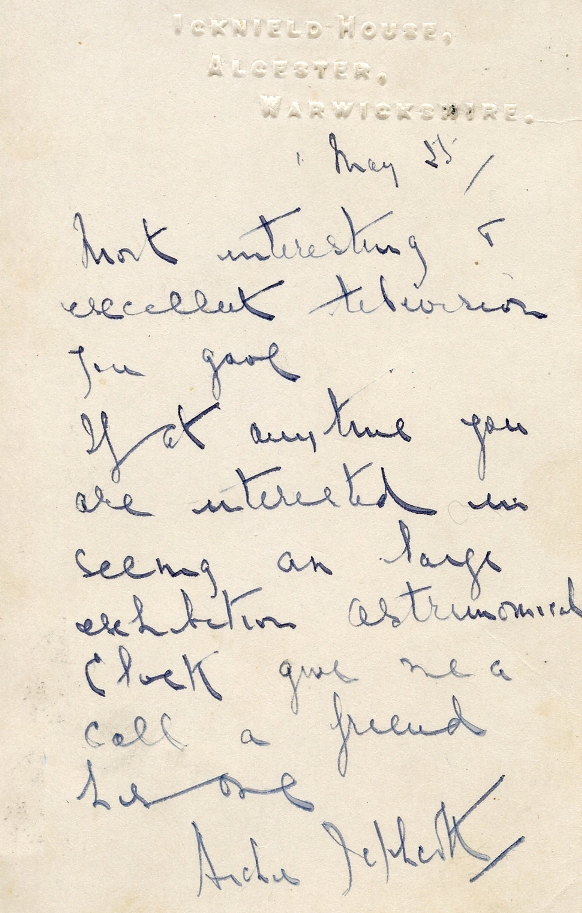 ICKNIELD HOUSE,
ALCESTER,
WARWICKSHIRE.
May 25/
Most interesting &
excellent television
you gave
If at anytime you
are interested in
seeing an large
exhibition astronomical
Clock give me a
call a friend
has one
Archie Jephcott